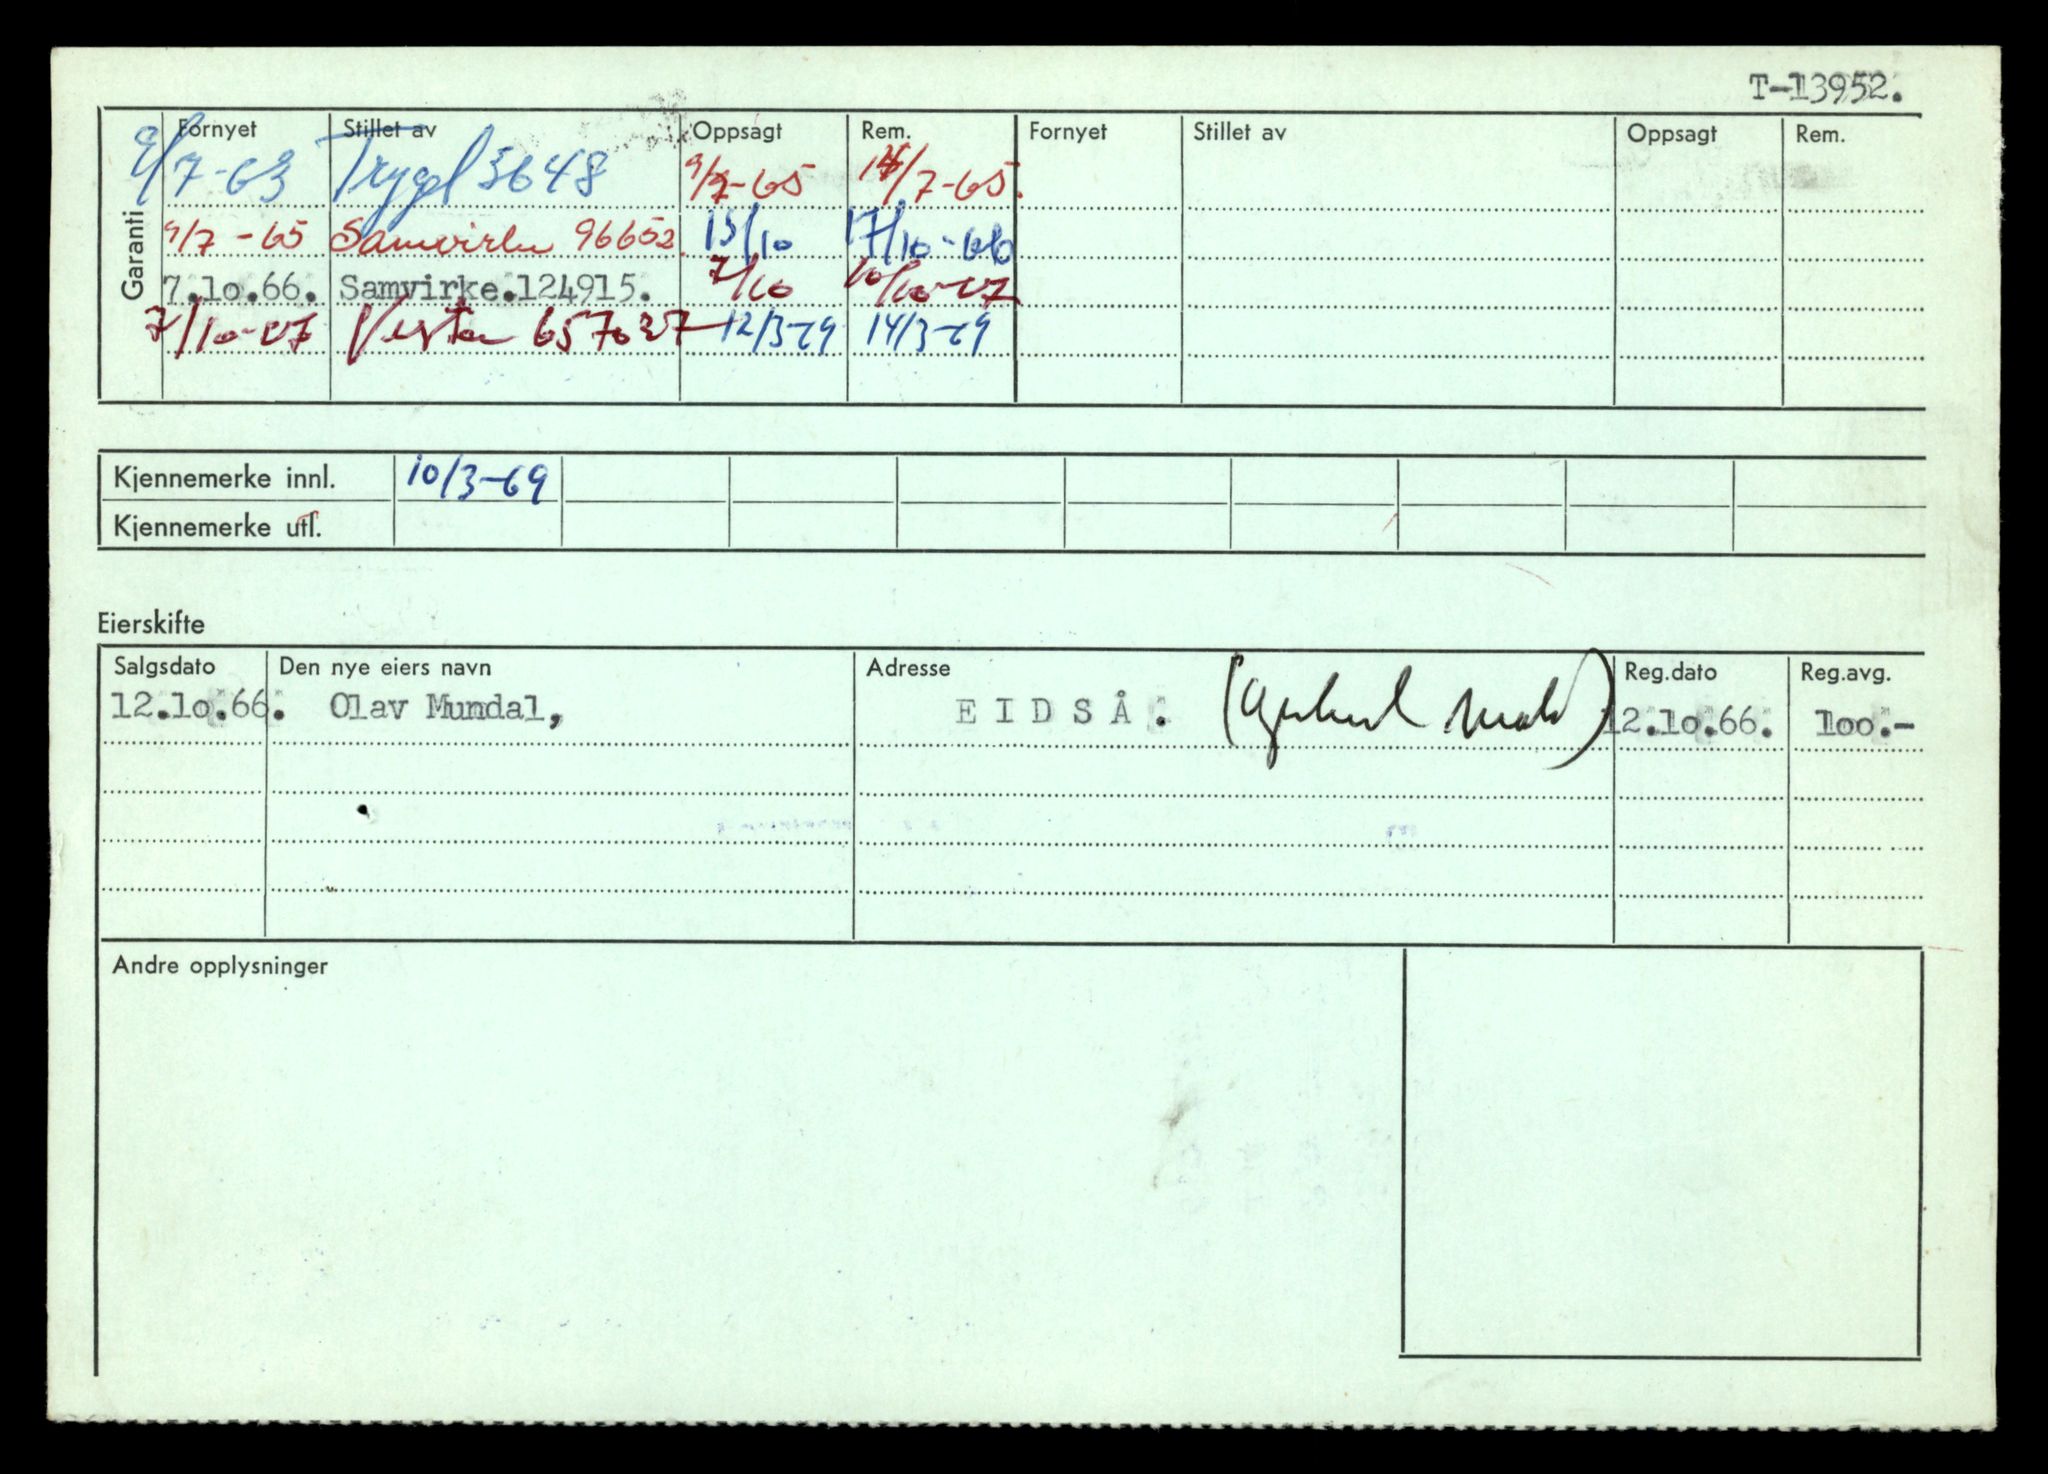 T-13952.
Garanti
Fornyet Stillet av Oppsagt Rem. Fornyet Stillet av Oppsagt Rem.
9/7-63 Trygd 3648 9/7-65 14/7-65.
9/7-65 Samvirke 96652 15/10 17/10-66
7.10.66. Samvirke.124915. 7/10 10/10-67
7/10-67 Vesta 657037 12/3-69 14/3-69
Kjennemerke innl. 10/3-69
Kjennemerke utl.
Eierskifte
Salgsdato Den nye eiers navn Adresse Reg.dato Reg.avg.
12.10.66. Olav Mundal, EIDSÅ. 12.10.66. 100.-
Andre opplysninger